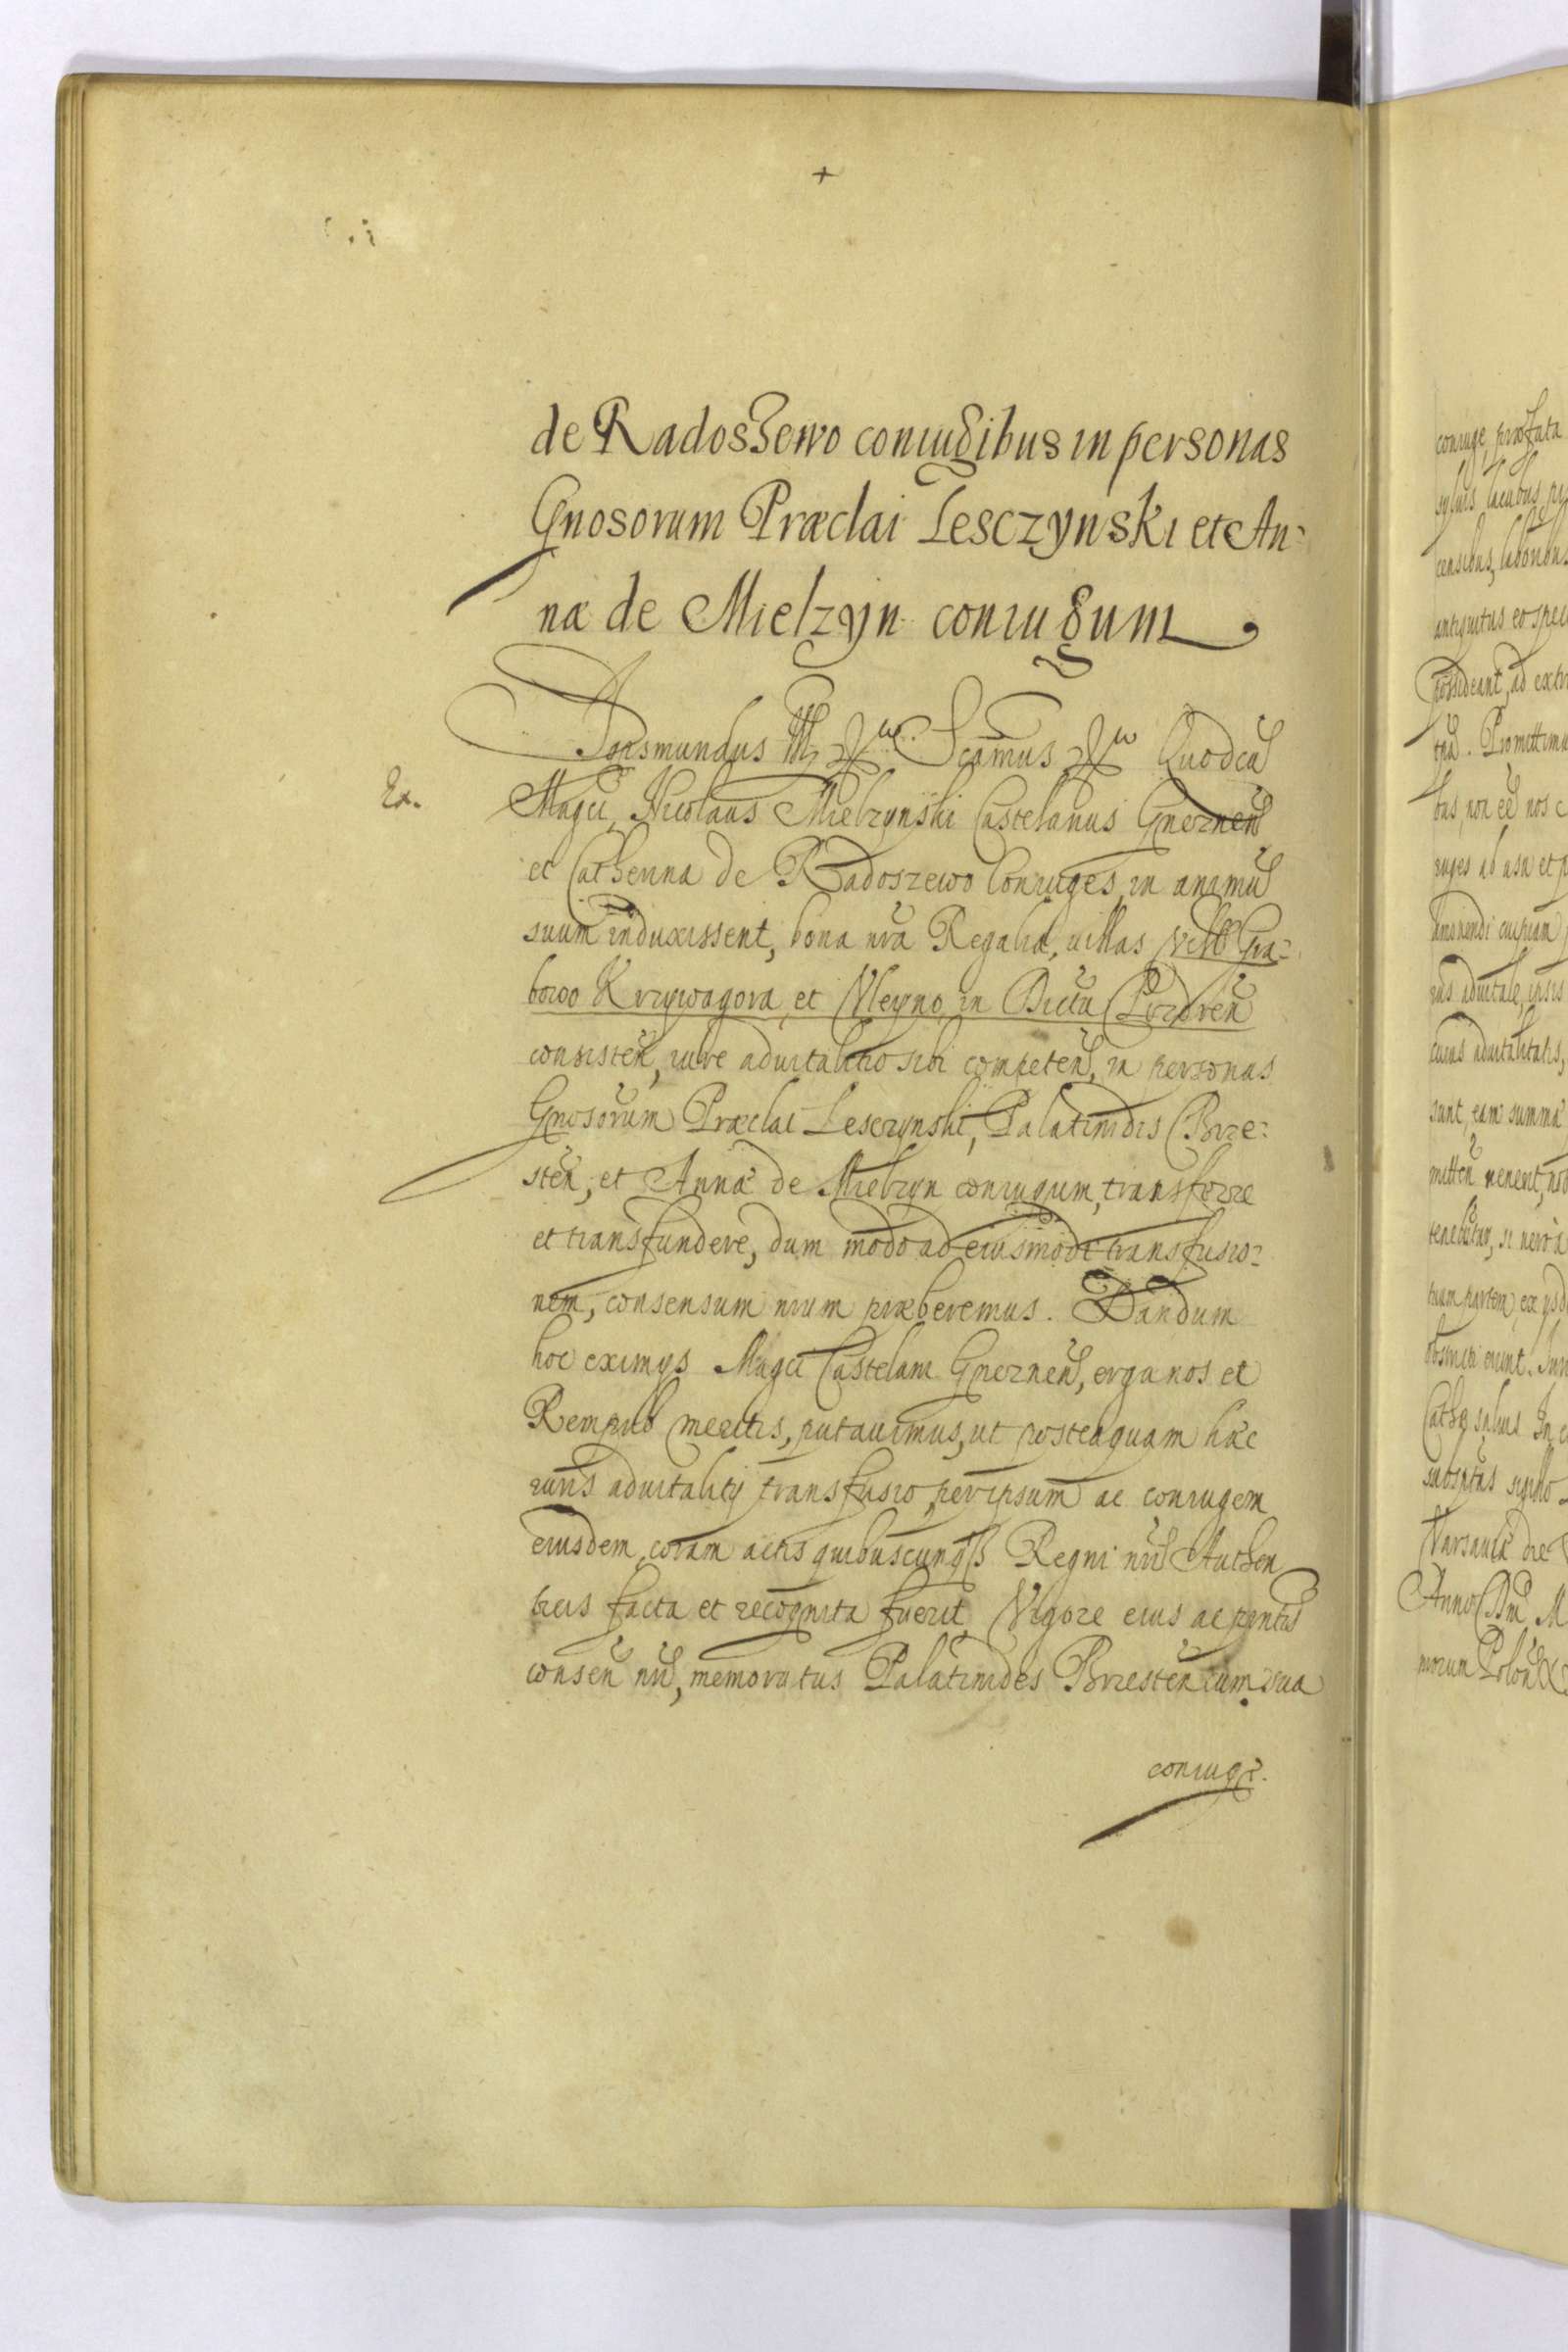 de Radoszewo coniugibus in personas
Gnosorum Præclai Lesczynski et An-
næ de Mielzyn coniugum
Sigismundus III Scimus Quodcũ
Ex.
Magci Nicolaus Mielzynski Castelanus Gneznen
et Catherina de Radoszewo Coniuges, in animũ
suum induxissent, bona nra Regalia, villas Gra-
bowo Krzywagora, et Vleyno in Dictu Pizdren
consisten, iure aduitalitio sibi competen, in personas
Gnosorum Præclai Lesczynski, Palatinidis Brze-
sten, et Annæ de Mielzyn coniugum, transferre
et transfundere, dum modo ad eiusmodi transfusio-
nem, consensum nrum præberemus. Dandum
hoc eximys Magci Castelani Gneznen, erga nos et
Rempub meritis, putauimus, ut posteaquam hæc
iuris aduitality transfusio, per ipsum ac coniugem
eiusdem, coram actis quibuscunqʒ Regni nri Authen
ticis facta et recognita fuerit, Vigore eius ac pntis
consen nri, memoratus Palatinides Brzesten cum sua
coniuge.
coniuge, præfata
syluis lacubus
censibus, laboribus
antiquitus eo
possideant, ad
Promittimus
bus, non ee nos
iuges ab usu et
amouendi cuipiam
ius aduitale, ipsis
cuius aduitalitatis,
sunt, eam summa
tenebitur, si
tiam partem, ex
obstricti erunt.
Varsauiæ die
Anno Dni M